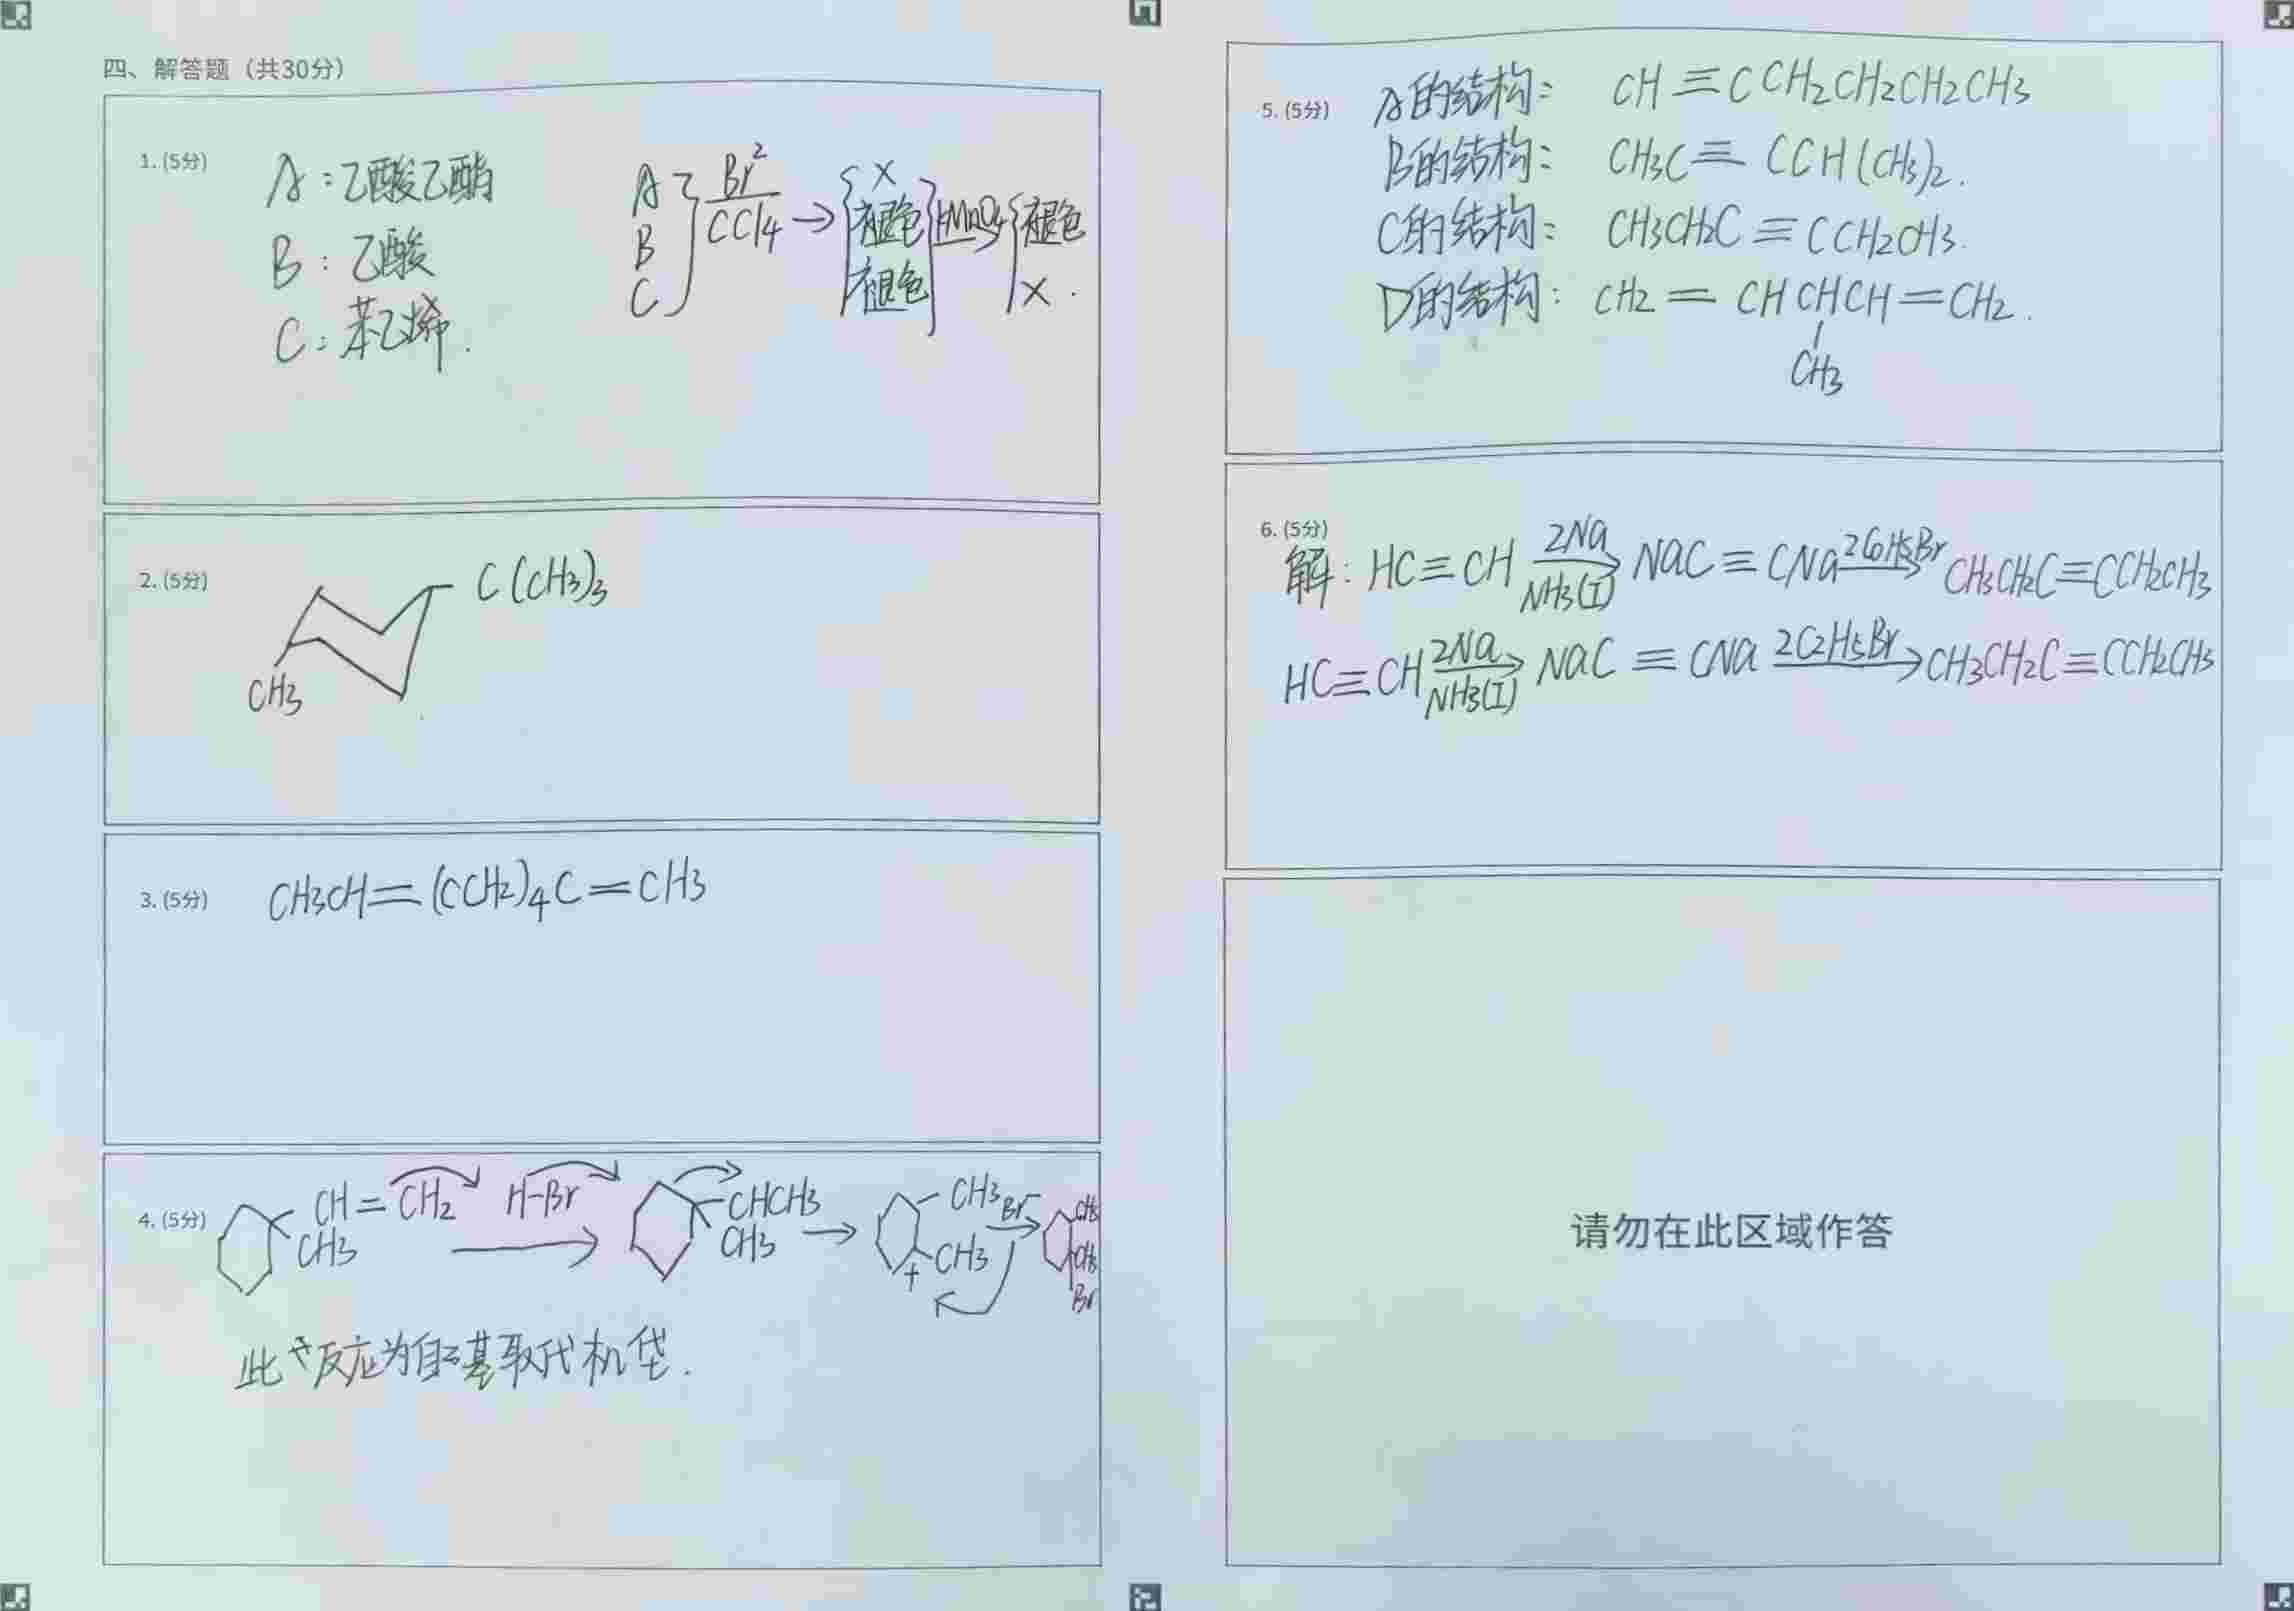 四、解答题（共30分）
1. (5分)
A：乙酸乙酯
B：乙酸
C：苯乙烯.
A
B
C
Br²
CCl4
→
X
褪色
褪色
KMnO4
褪色
X .
2. (5分)
C(CH3)3
CH3
3. (5分) CH3CH=(CCH2)4C=CH3
4. (5分)
CH=CH2 H-Br
CH3
CHCH3
CH3
CH3
CH3
+
Br-
CH3
CH3
Br
此反应为自基取代机
5. (5分) A的结构： CH≡CCH2CH2CH2CH3
B的结构： CH3C≡CCH(CH3)2.
C的结构： CH3CH2C≡CCH2CH3.
D的结构： CH2=CHCHCH=CH2.
CH3
6. (5分)
解：HC≡CH 2Na NH3(I) NaC≡CNa CH3CH2C≡CCH2CH3
HC≡CH 2Na NH3(I) NaC≡CNa 2C2H5Br CH3CH2C≡CCH2CH3
请勿在此区域作答